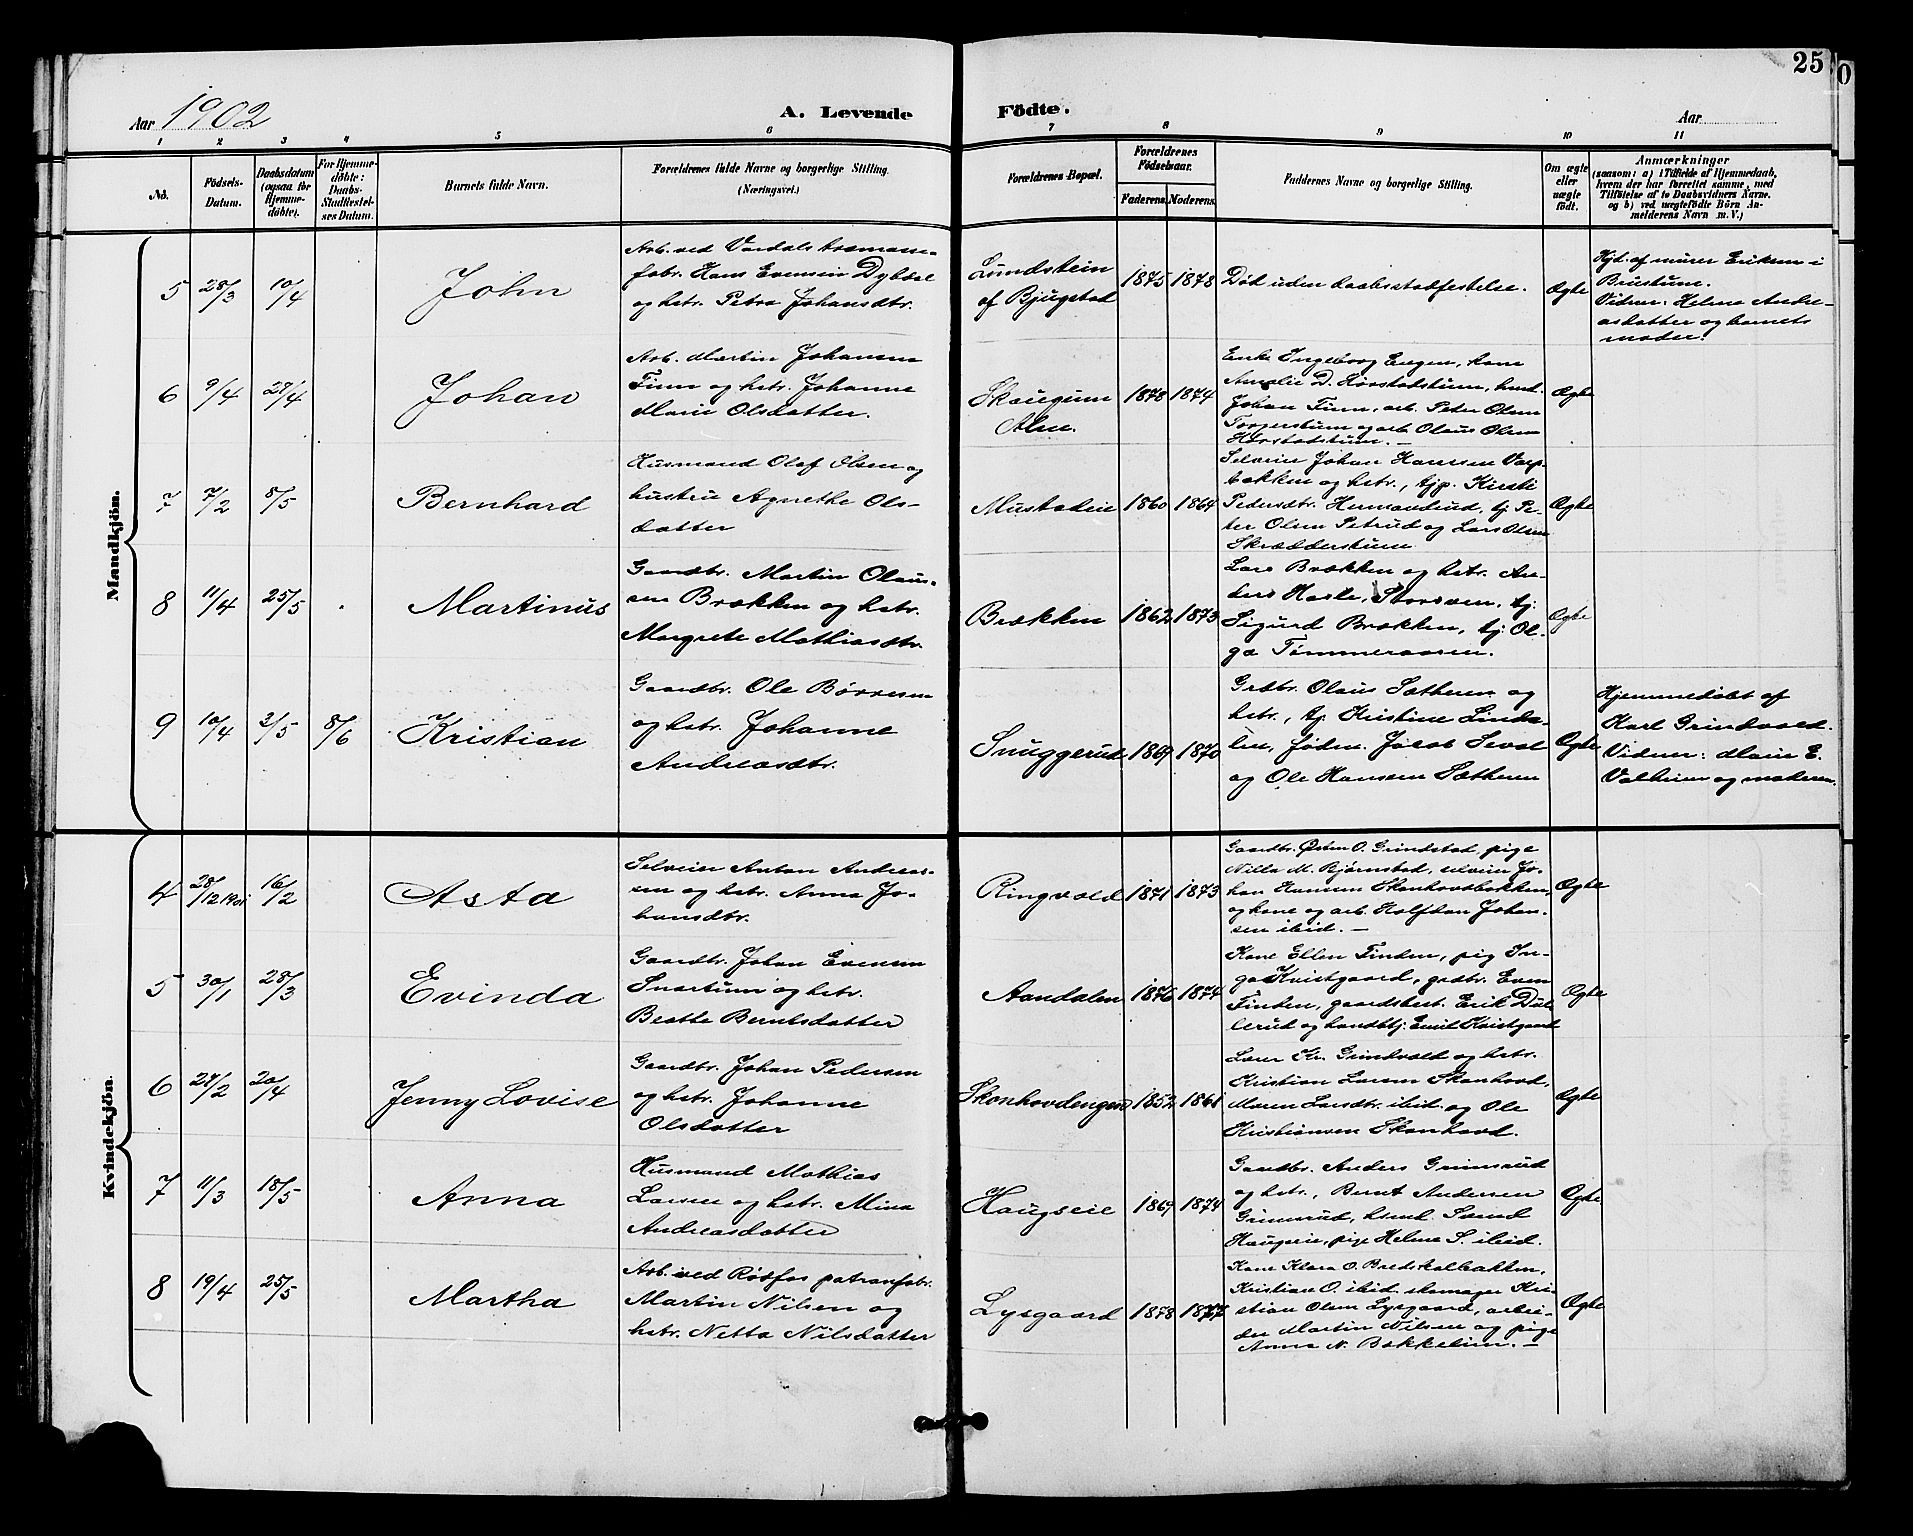 25
Aar 1902
A. Levende Födte.
Aar
1 2 3 4 5 6 7 8 9 10 11
No.
Födsels-
Datum.
Daabsdatum
(ogsaa for
Hjemme-
döbte).
For Hjemme-
döbte:
Daabs-
Stadfæstel-
ses Datum.
Barnets fulde Navn.
Forældrenes fulde Navne og borgerlige Stilling.
(Næringsvei.)
Forældrenes Bopæl.
Forældrenes
Födselsaar.
Faderens. Moderens.
Faddernes Navne og borgerlige Stilling.
Om ægte
eller
uægte
født.
Anmærkninger
(saasom: a) i Tilfælde af Hjemmedaab,
hvem der har forrettet samme, med
Tilföielse af to Daabsvidners Navne,
og b) ved uægtefödte Börn An-
melderens Navn m. V.)
Mandkjön.
5 28/3 10/4 John
Arb. ved Vardals
fabr. Hans Evensen Dybdal
og hstr. Petra Johansdtr.
Lundstein
af Bjugstad
1875 1878
Død uden daabsstadfestelse.
Ægte
Hjd. af murer Eriksen i
Brustuen.
Vidner: Helene Andre-
asdatter og barnets
moder.
6 9/4 27/4 Johan
Arb. Martin Johansen
Finn og hstr. Johanne
Marie Olsdatter.
Skaugum
Alm.
1878 1874
Enke Ingeborg Engen, kone
Amalie D. Hørstadstuen, hmd.
Johan Finn, arb. Peter Olsen
Torgerstuen og arb. Olaus Olsen
Hørstadstuen. —
Ægte
7 7/2 8/5 Bernhard
Husmand Olaf Olsen og
hustru Agnethe Ols-
datter
Mustadeie
1860 1864
Selveier Johan Hanssen Varp-
bakken og hstr., tjp. Kirsti
Pedersdtr. Hermandrud, tj. Pe-
ter Olsen Petrud og Lars Olsen
Skrædderstuen
Ægte
8 11/4 25/5 Martinus
Gaardbr. Martin Olaus-
sen Brækken og hstr.
Margrete Mathiasdtr.
Brækken
1862 1873
Lars Brækken og hstr. An-
ders Hasle, Storsven, tj.
Sigurd Brækken, tj. Ol-
ga Tømmeraasen.
Ægte
9 10/4 2/5 8/6 Kristian
Gaardbr. Ole Børresen
og hstr. Johanne
Andreasdtr.
Snuggerud
1869 1870
Grdbr. Olaus Sætheren og
hstr., tj. Kristine Linda-
len, Jøden. Jacob Seval
og Ole Hansen Sætheren
Ægte
Hjemmedøbt af
Karl Grindvold.
Vidner: Marie E.
Valheim og moderen.
Kvindekjön.
4 28/12 1901 16/2 Asta
Selveier Anton Andreas-
sen og hstr. Anna Jo-
hansdtr.
Ringvold
1871 1873
Gaardbr. Østen O. Grindstad, pige
Nilla M. Bjørnstad, selveier Jo-
han Hansen Skonhovdbakken,
og kone og arb. Halfdan Johan-
sen ibid. —
Ægte
5 30/1 28/3 Evinda
Gaardbr. Johan Evensen
Snartum og hstr.
Beatte Berntsdatter
Aandalen
1876 1874
Kone Ellen Finden, pig In-
ga Kvistgaard, grdbr. Even
Finden, gaardbest. Erik Dul-
lerud og handbtj. Emil Kvistgaard
Ægte
6 27/2 20/4 Jenny Lovise
Gaardbr. Johan Pedersen
og hstr. Johanne
Olsdatter
Skonhovdengen
1852 1861
Lærer Kr. Grindvold og hstr.
Kristian Larsen Skonhovd,
Maren Larsdtr. ibid. og Ole
Kristiansen Skonhovd.
Ægte
7 11/3 18/5 Anna
Husmand Mathias
Larsen og hstr. Mina
Andreasdatter
Haugseie
1869 1874
Gaardbr. Anders Grimsrud
og hstr., Bernt Andersen
Grimsrud, hsmd. Svend
Haugseie, pige Helene S. ibid.
Ægte
8 19/4 25/5 Martha
Arb. ved Rødfos patronfabr.
Martin Nilsen og
hstr. Netta Nilsdatter
Lysgaard
1878 1877
Kone Klara O. Bredskalbakken,
Kristiane O. ibid. skomager Kri-
stian Olsen Lysgaard, arbei-
der Martin Nilsen og pige
Anna N. Bækkelien. —
Ægte